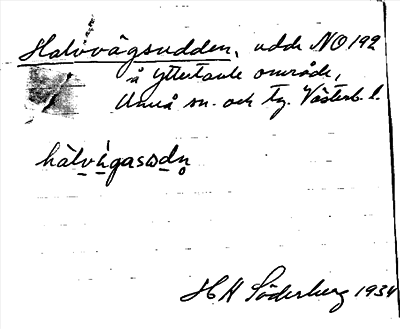 Halvvägsudden, udde NO 192
å Yttertavle område,
Umeå sn. och tg. Västerb. l.
hàlvä́gasωdn̥
H H Söderberg 1934